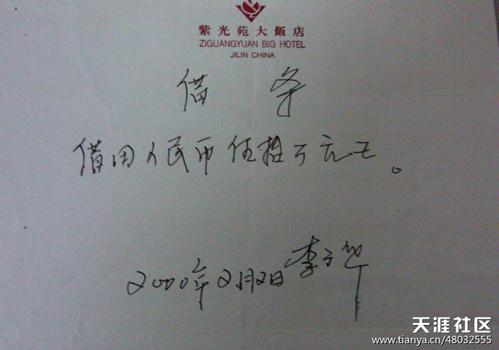 紫光苑大飯店
ZIGUANGYUAN BIG HOTEL
JILIN CHINA
借条
借用人民币伍拾万元正。
2000年2月2日 李
天涯社区
www.tianya.cn/48032555